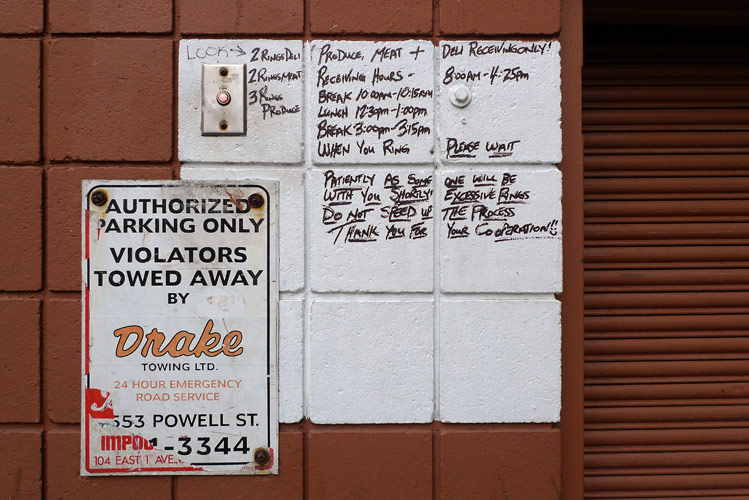 LOOK→ 2 RINGS DELI
2 RINGS MEAT
3 RINGS
PRODUCE
PRODUCE, MEAT + DELI RECEIVING ONLY!
RECEIVING HOURS - 8:00AM-4:25PM
BREAK 10:00AM-10:15AM
LUNCH 12:30PM-1:00PM
BREAK 3:00PM-3:15PM
WHEN YOU RING PLEASE WAIT
PATIENTLY AS SOME ONE WILL BE
WITH YOU SHORTLY! EXCESSIVE RINGS
DO NOT SPEED UP THE PROCESS
THANK YOU FOR YOUR COOPERATION!!
AUTHORIZED
PARKING ONLY
VIOLATORS
TOWED AWAY
BY
Drake
TOWING LTD.
24 HOUR EMERGENCY
ROAD SERVICE
553 POWELL ST.
IMPOU 1-3344
104 EAST 1 AVE.